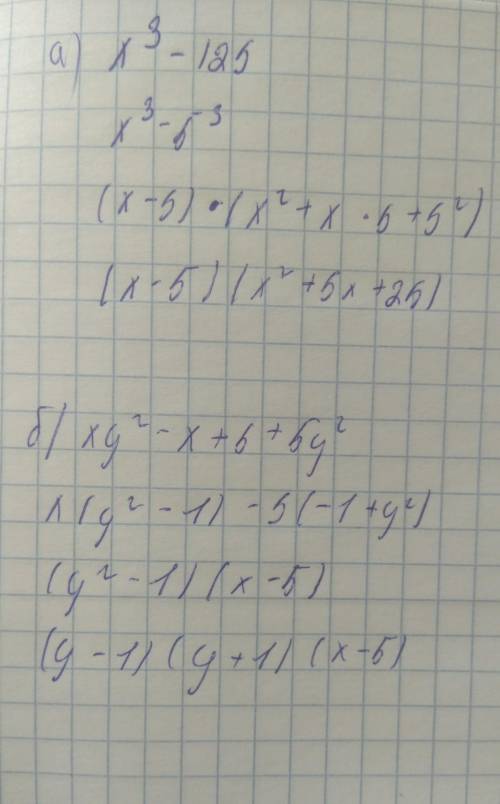 а) x³ - 125
x³ - 5³
(x - 5) · (x² + x · 5 + 5²)
(x - 5) (x² + 5x + 25)
б) xy² - x + 5 + 5y²
x (y² - 1) - 5 (-1 + y²)
(y² - 1) (x - 5)
(y - 1) (y + 1) (x - 5)